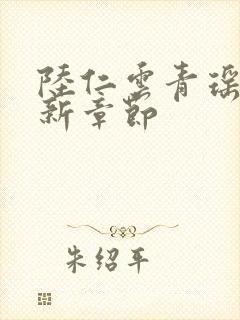 陸仁雲青瑶
新章節
朱绍平